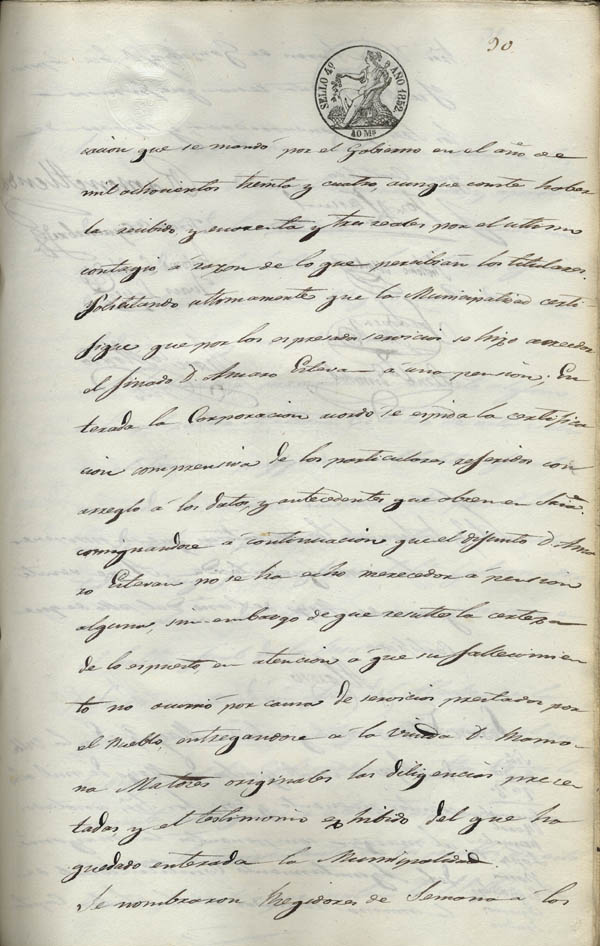 90
SELLO 4º AÑO 1852
40 Ms
cacion que se mandó por el Gobierno en el año de
mil ochocientos treinta y cuatro, aunque conste haber
la recibido, y cuarenta y tres reales por el ultimo
contagio, á razon de lo que percibian los titulares.
Solicitando ultimamente que la Municipalidad certi-
fique que por los espresados servicios se hizo acreedor
el finado D. Amaro Estevan á una pension; En
terada la Corporacion acordó se espida la certifica
cion comprensiva de los particulares referidos con
arreglo á los datos, y antecedentes que obren en Sria.
consignandose á continuacion que el difunto D. Ama
ro Estevan no se ha echo merecedor á pension
alguna, sin embargo de que resulte la certeza
de lo espuesto, en atencion á que su fallecimien
to no ocurrió por causa de servicios prestados por
el Pueblo, entregandose á la Viuda Dª Ramo
na Matores originales las diligencias presen
tadas y el testimonio exhibido del que ha
quedado enterada la Municipalidad.
Se nombraron Regidores de Semana á los